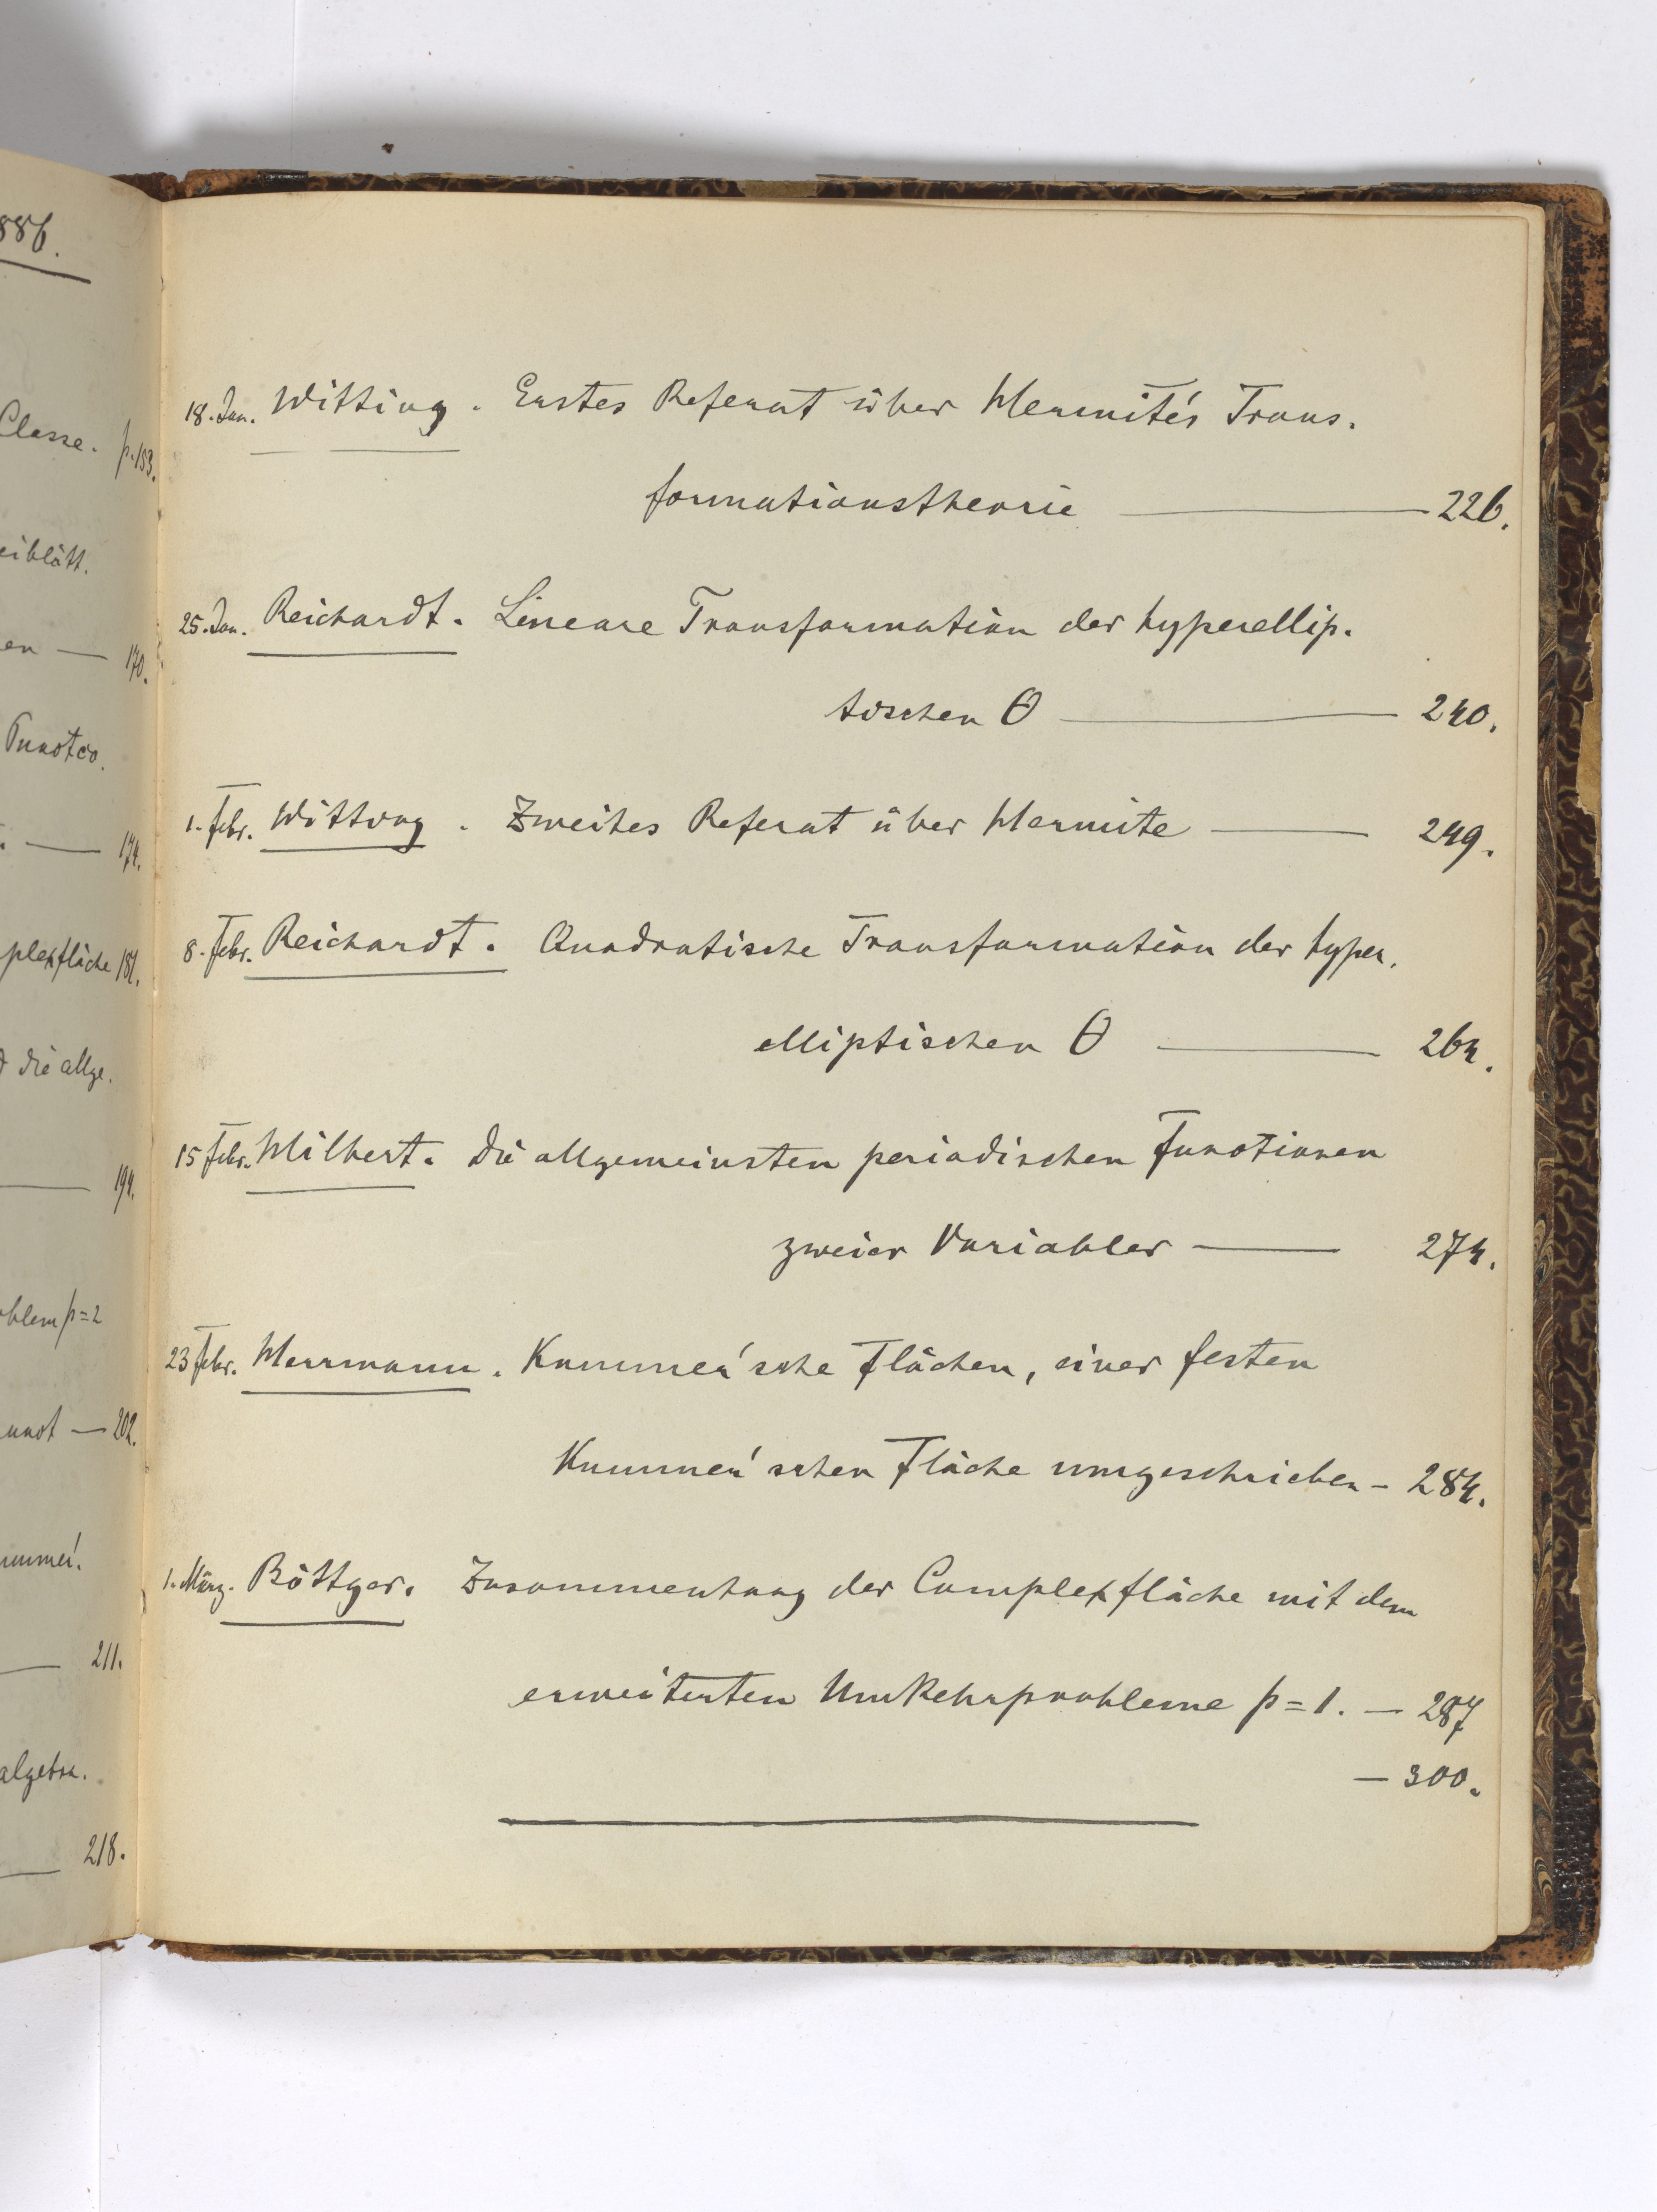 886.
Classe. p.153.
eiblätt.
en — 170.
Funct co.
— 174.
plexfläche 181.
d die allge.
— 194.
oblem p=2
unct — 202.
ummer'.
— 211.
algebr.
— 218.
18. Jan. Witting. Erstes Referat über Hermite's Trans-
formationstheorie — 226.
25. Jan. Reichardt. Lineare Transformation der hyperellip-
tischen Θ — 240.
1. Febr. Witting. Zweites Referat über Hermite — 249.
8. Febr. Reichardt. Quadratische Transformation der hyper-
elliptischen Θ — 264.
15 Febr. Hilbert. Die allgemeinsten periodischen Functionen
zweier Variabler — 274.
23 Febr. Herrmann. Kummer'sche Flächen, einer festen
Kummer'schen Fläche umgeschrieben — 284.
1. März. Böttger. Zusammenhang der Complexfläche mit dem
erweiterten Umkehrprobleme p=1. — 287
— 300.